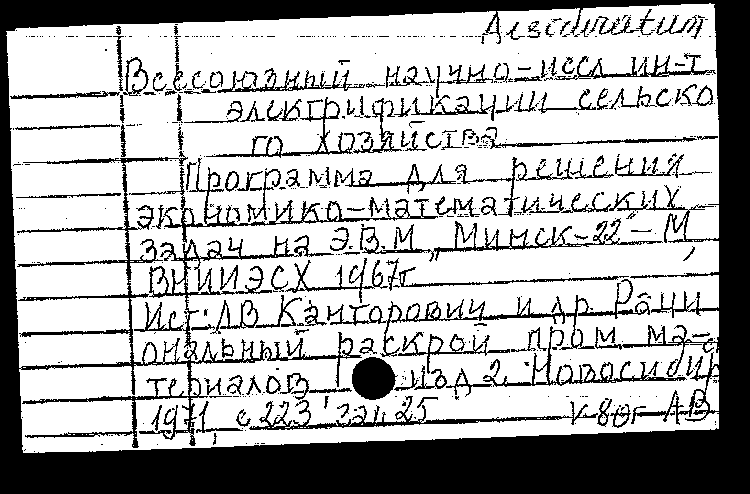 Desideratum
Всесоюзный научно-иссл ин-т
электрификации сельско
го хозяйства
Программа для решения
экономико-математических
задач на Э.В.М „Минск-22"-М,
ВНИИЭСХ 1967г
Ист: ЛВ Канторович и др. Раци
ональный раскрой пром. ма-
териалов изд 2. Новосибир
1971, с 223